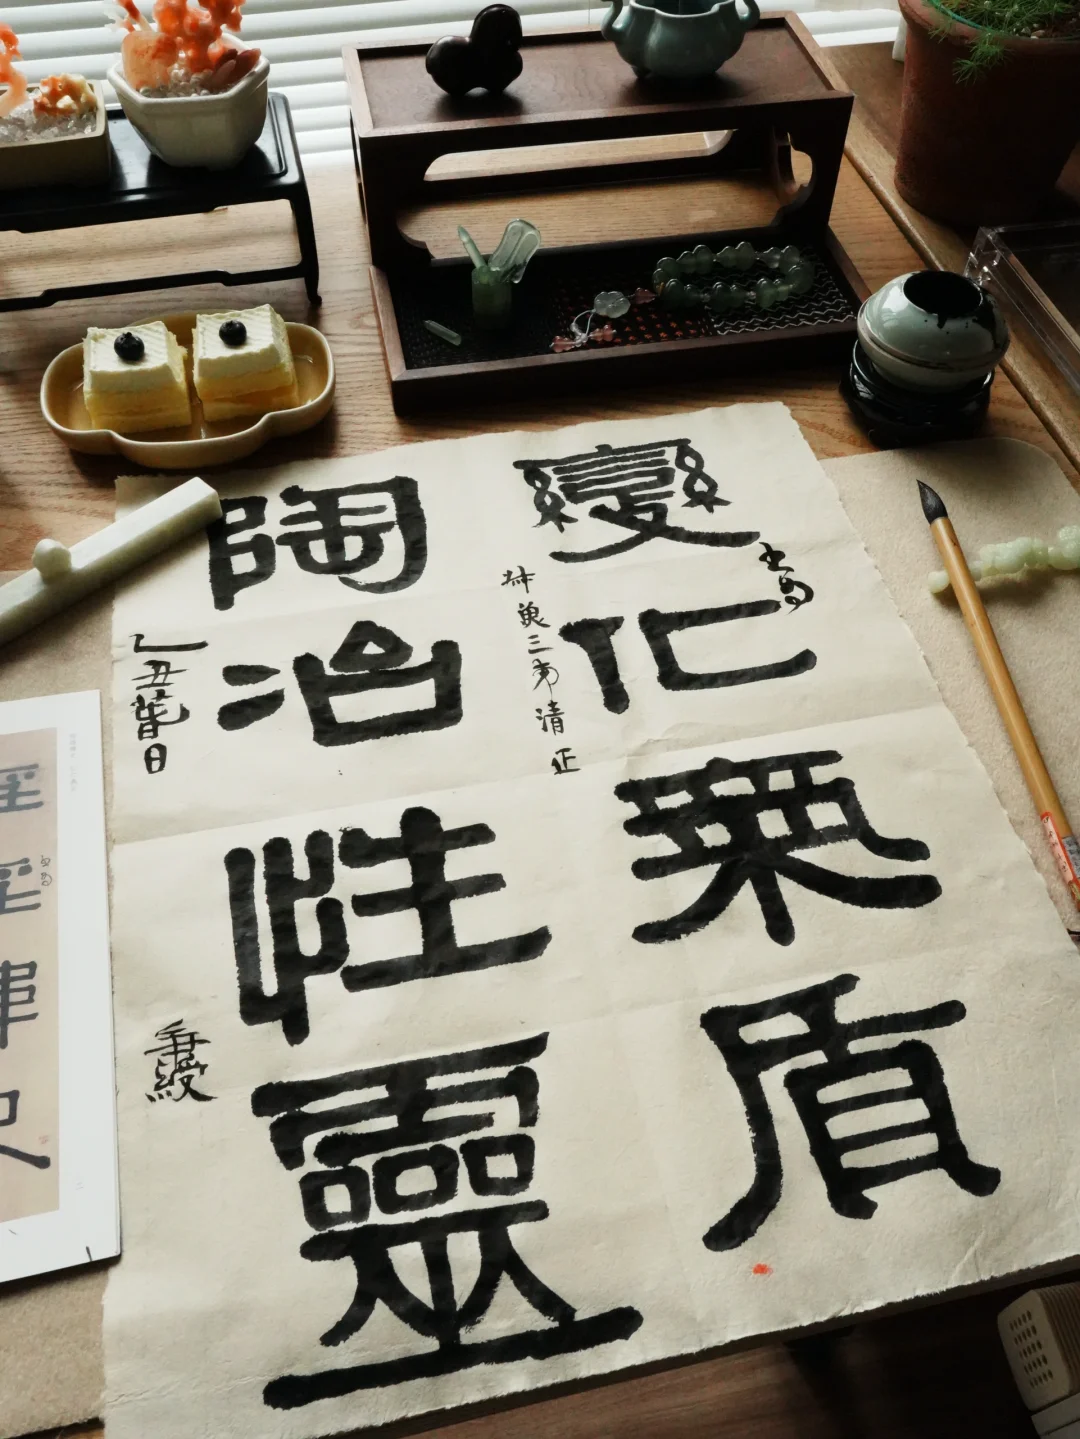 變化氣質
書為
三弟清正
陶冶性靈
乙丑
日
秉綬